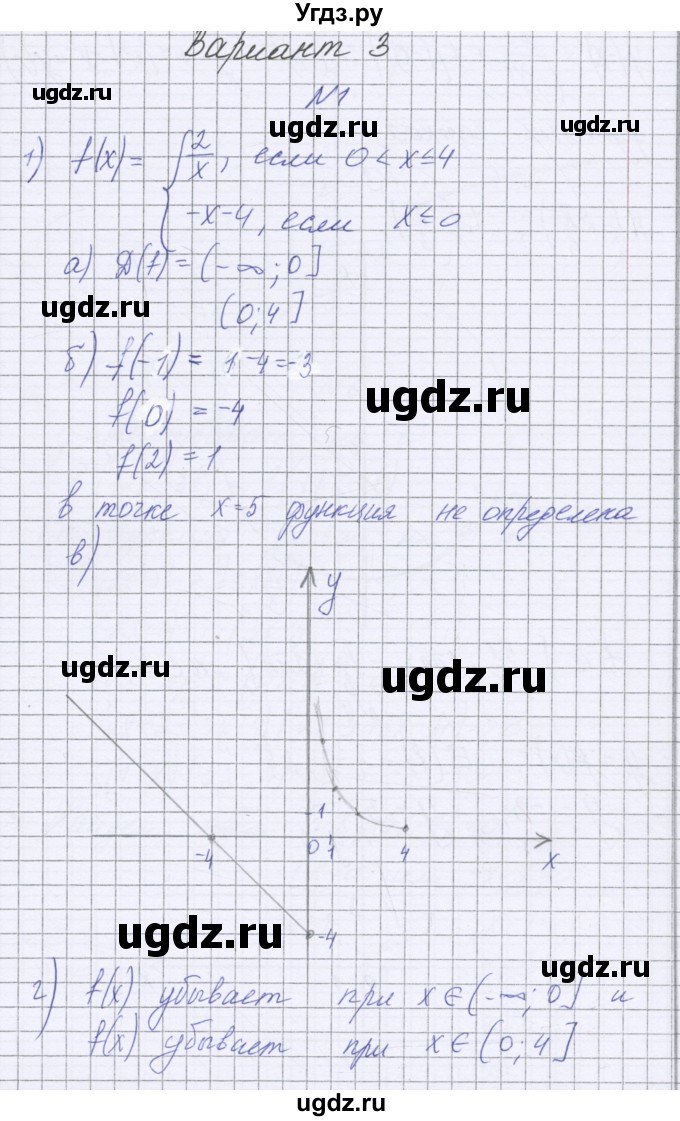 Угдз.ру
Вариант 3
ugdz.ru
№1
ugdz.ru
ugdz.ru
1) f(x) = { 2/x, если 0 < x ≤ 4
-x-4, если x ≤ 0
а) Д(f) = (-∞; 0]
ugdz.ru
(0; 4]
б) f(-1) = 1-4=-3
ugdz.ru
f(0) = -4
f(2) = 1
в точке x=5 функция не определена
в)
y
ugdz.ru
ugdz.ru
1
-4 0 1 4 x
ugdz.ru
-4
ugdz.ru
г) f(x) убывает при x ∈ (-∞; 0] и
f(x) убывает при x ∈ (0; 4]
ugdz.ru